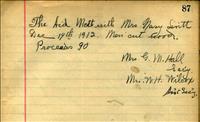 87
The Aid Mett with Mrs Gary Smith
Dec 19th 1912. Men cut wood.
Proceeds 90
Mrs G. W. Hall
Secy
Mrs. W. H. Wilcox
Secy.